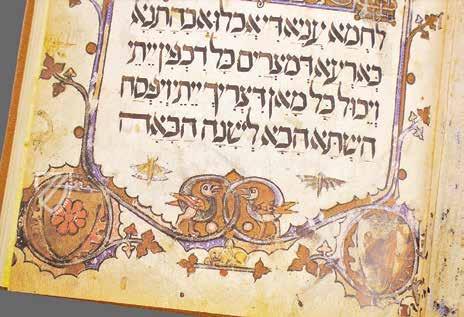 לחמא עניא די אכלו אבהתנא
בארעא דמצרים כל דכפין ייתי
ויכול כל מאן דצריך ייתי ויפסח
השתא הכא לשנה הבאה